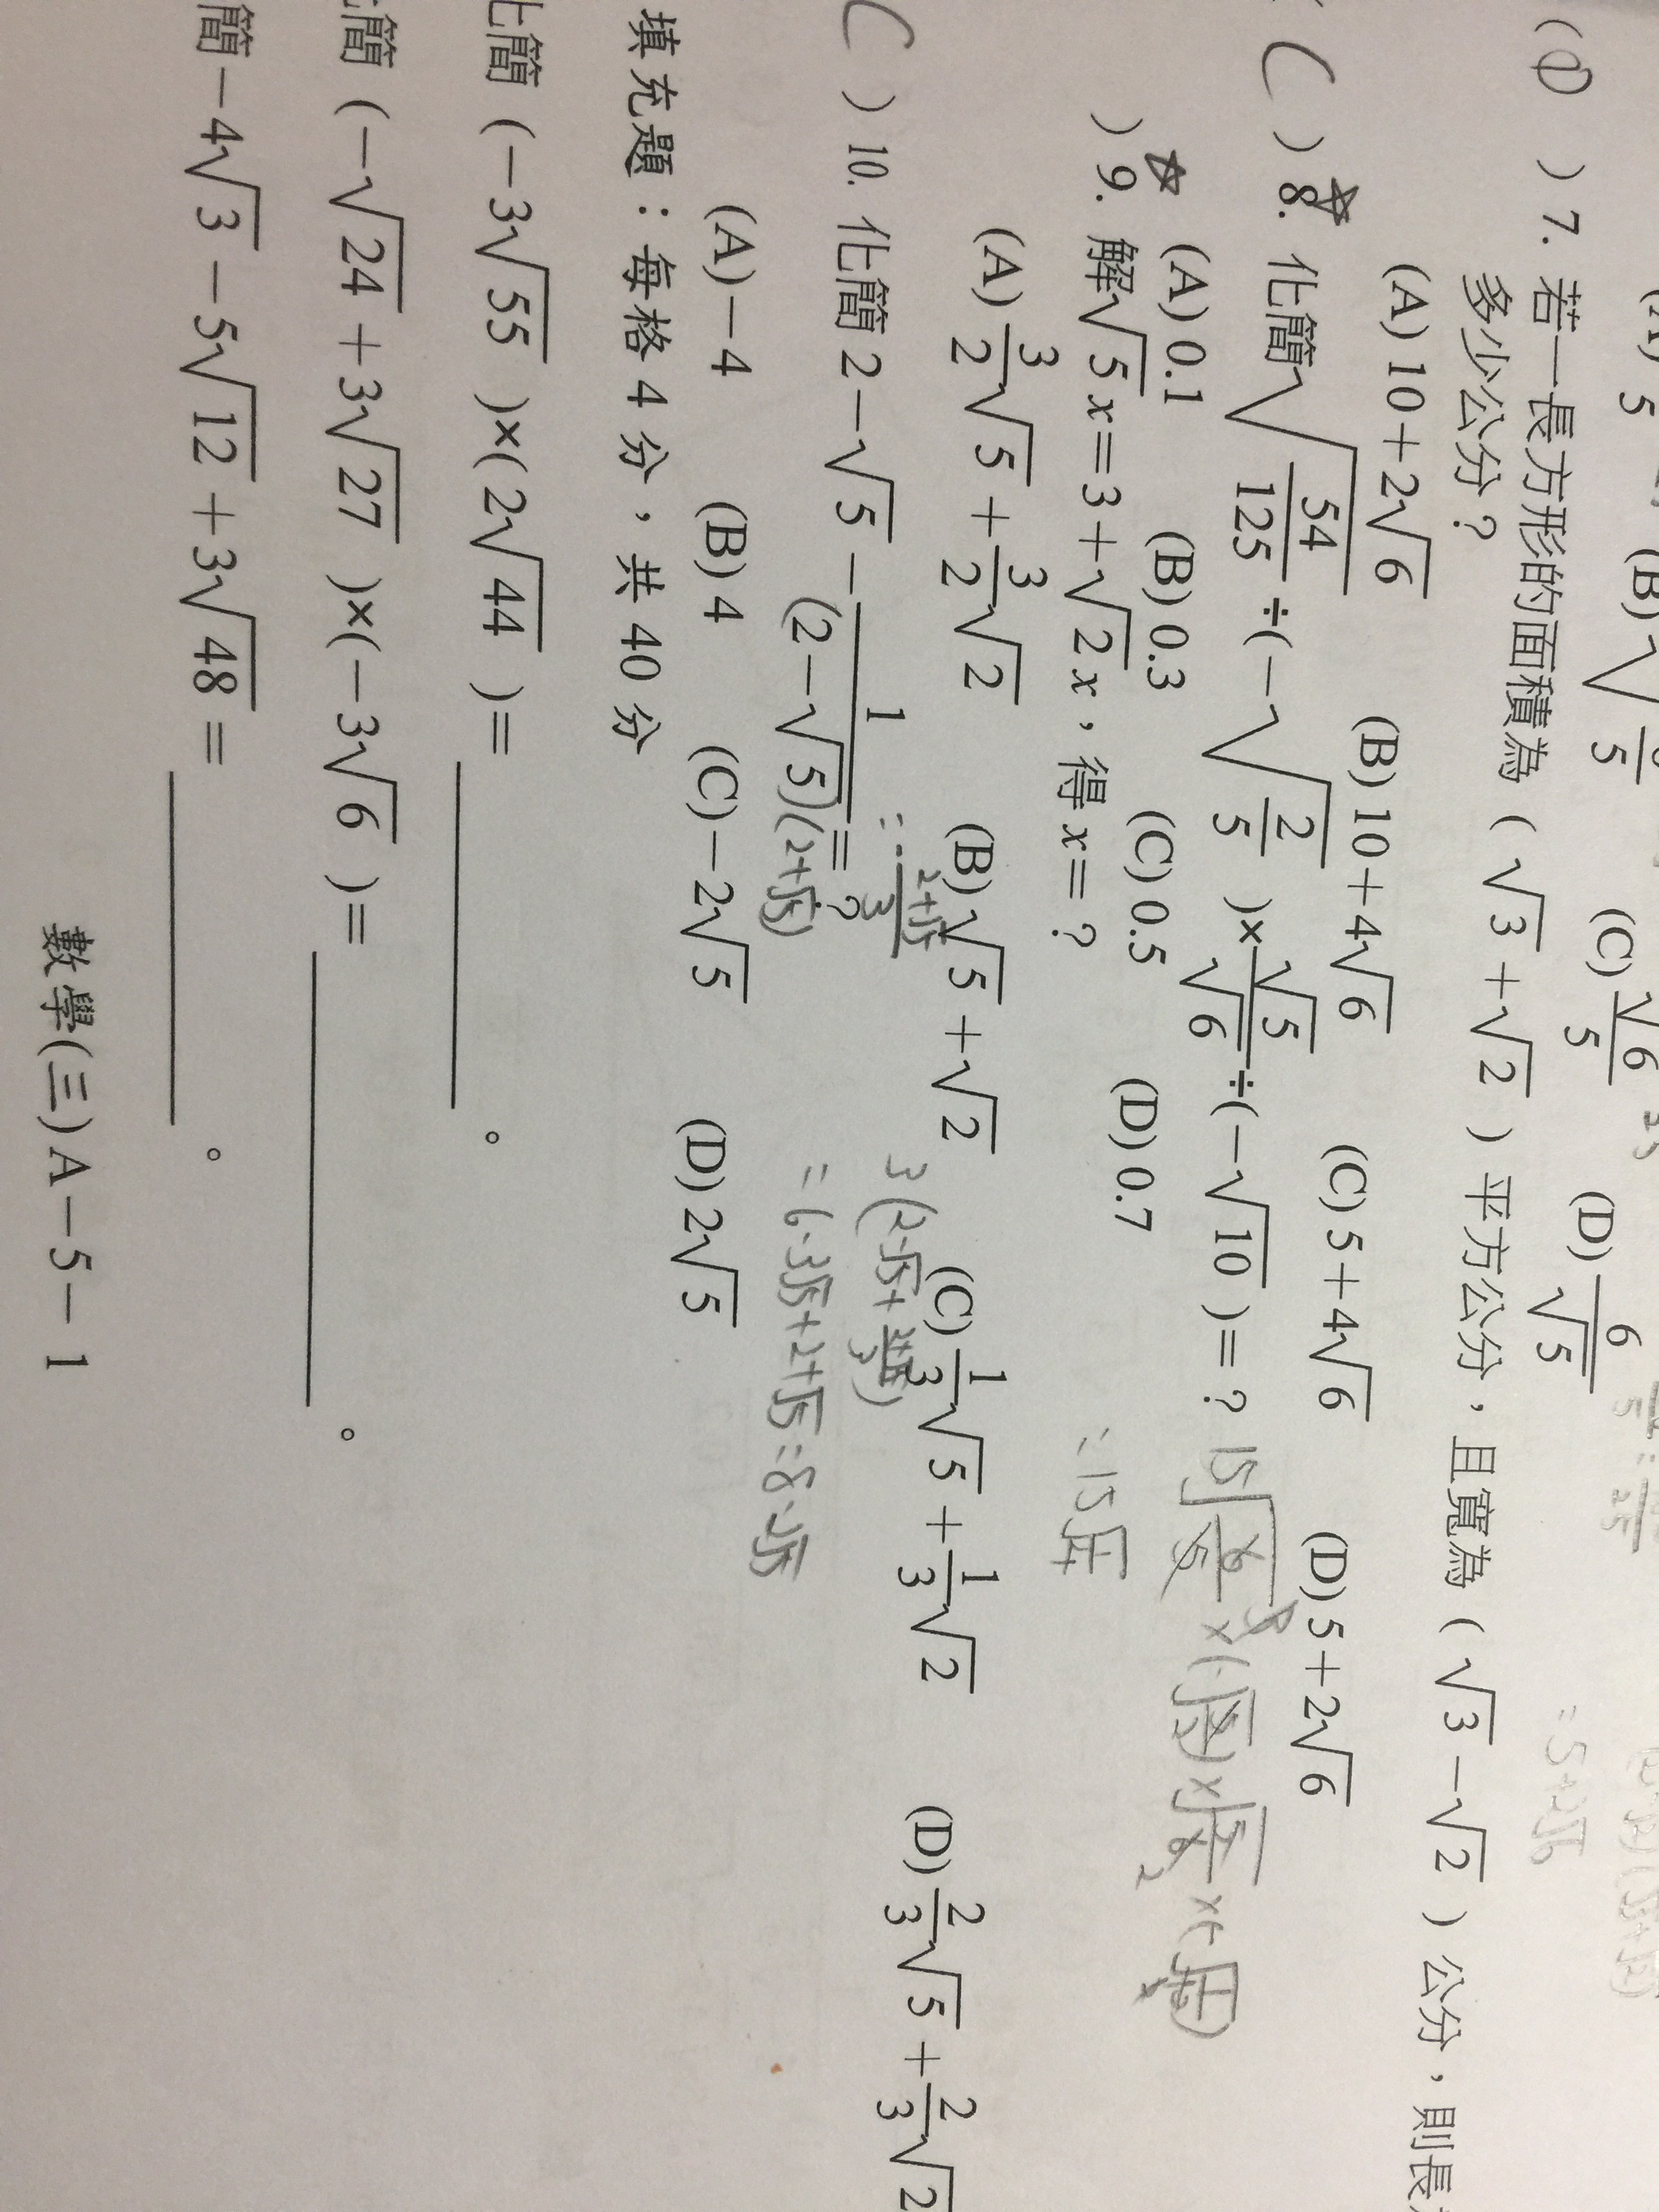 (A) 5 (B)√ 5 (C) √6/5 (D) 6/√5
(D) 7. 若一長方形的面積為 ( √3 + √2 ) 平方公分，且寬為 ( √3 − √2 ) 公分，則長
多少公分？
= 5+2√6
(A) 10 + 2√6 (B) 10 + 4√6 (C) 5 + 4√6 (D) 5 + 2√6
( C ) 8. 化簡 √(54/125) ÷ ( −√(2/5) ) × √5/√6 ÷ ( −√10 ) = ?
(A) 0.1 (B) 0.3 (C) 0.5 (D) 0.7
) 9. 解 √5 x = 3 + √2 x，得 x = ?
(A) 3/2 √5 + 3/2 √2 (B) √5 + √2 (C) 1/3 √5 + 1/3 √2 (D) 2/3 √5 + 2/3 √2
( C ) 10. 化簡 2 − √5 − 1/(2 − √5) = ?
(2+√5)
= 6-3√5+2+√5 = 8-2√5
(A) −4 (B) 4 (C) −2√5 (D) 2√5
填充題：每格 4 分，共 40 分
化簡 ( −3√55 ) × ( 2√44 ) = 。
化簡 ( −√24 + 3√27 ) × ( −3√6 ) = 。
簡 −4√3 − 5√12 + 3√48 = 。
數學(三) A − 5 − 1